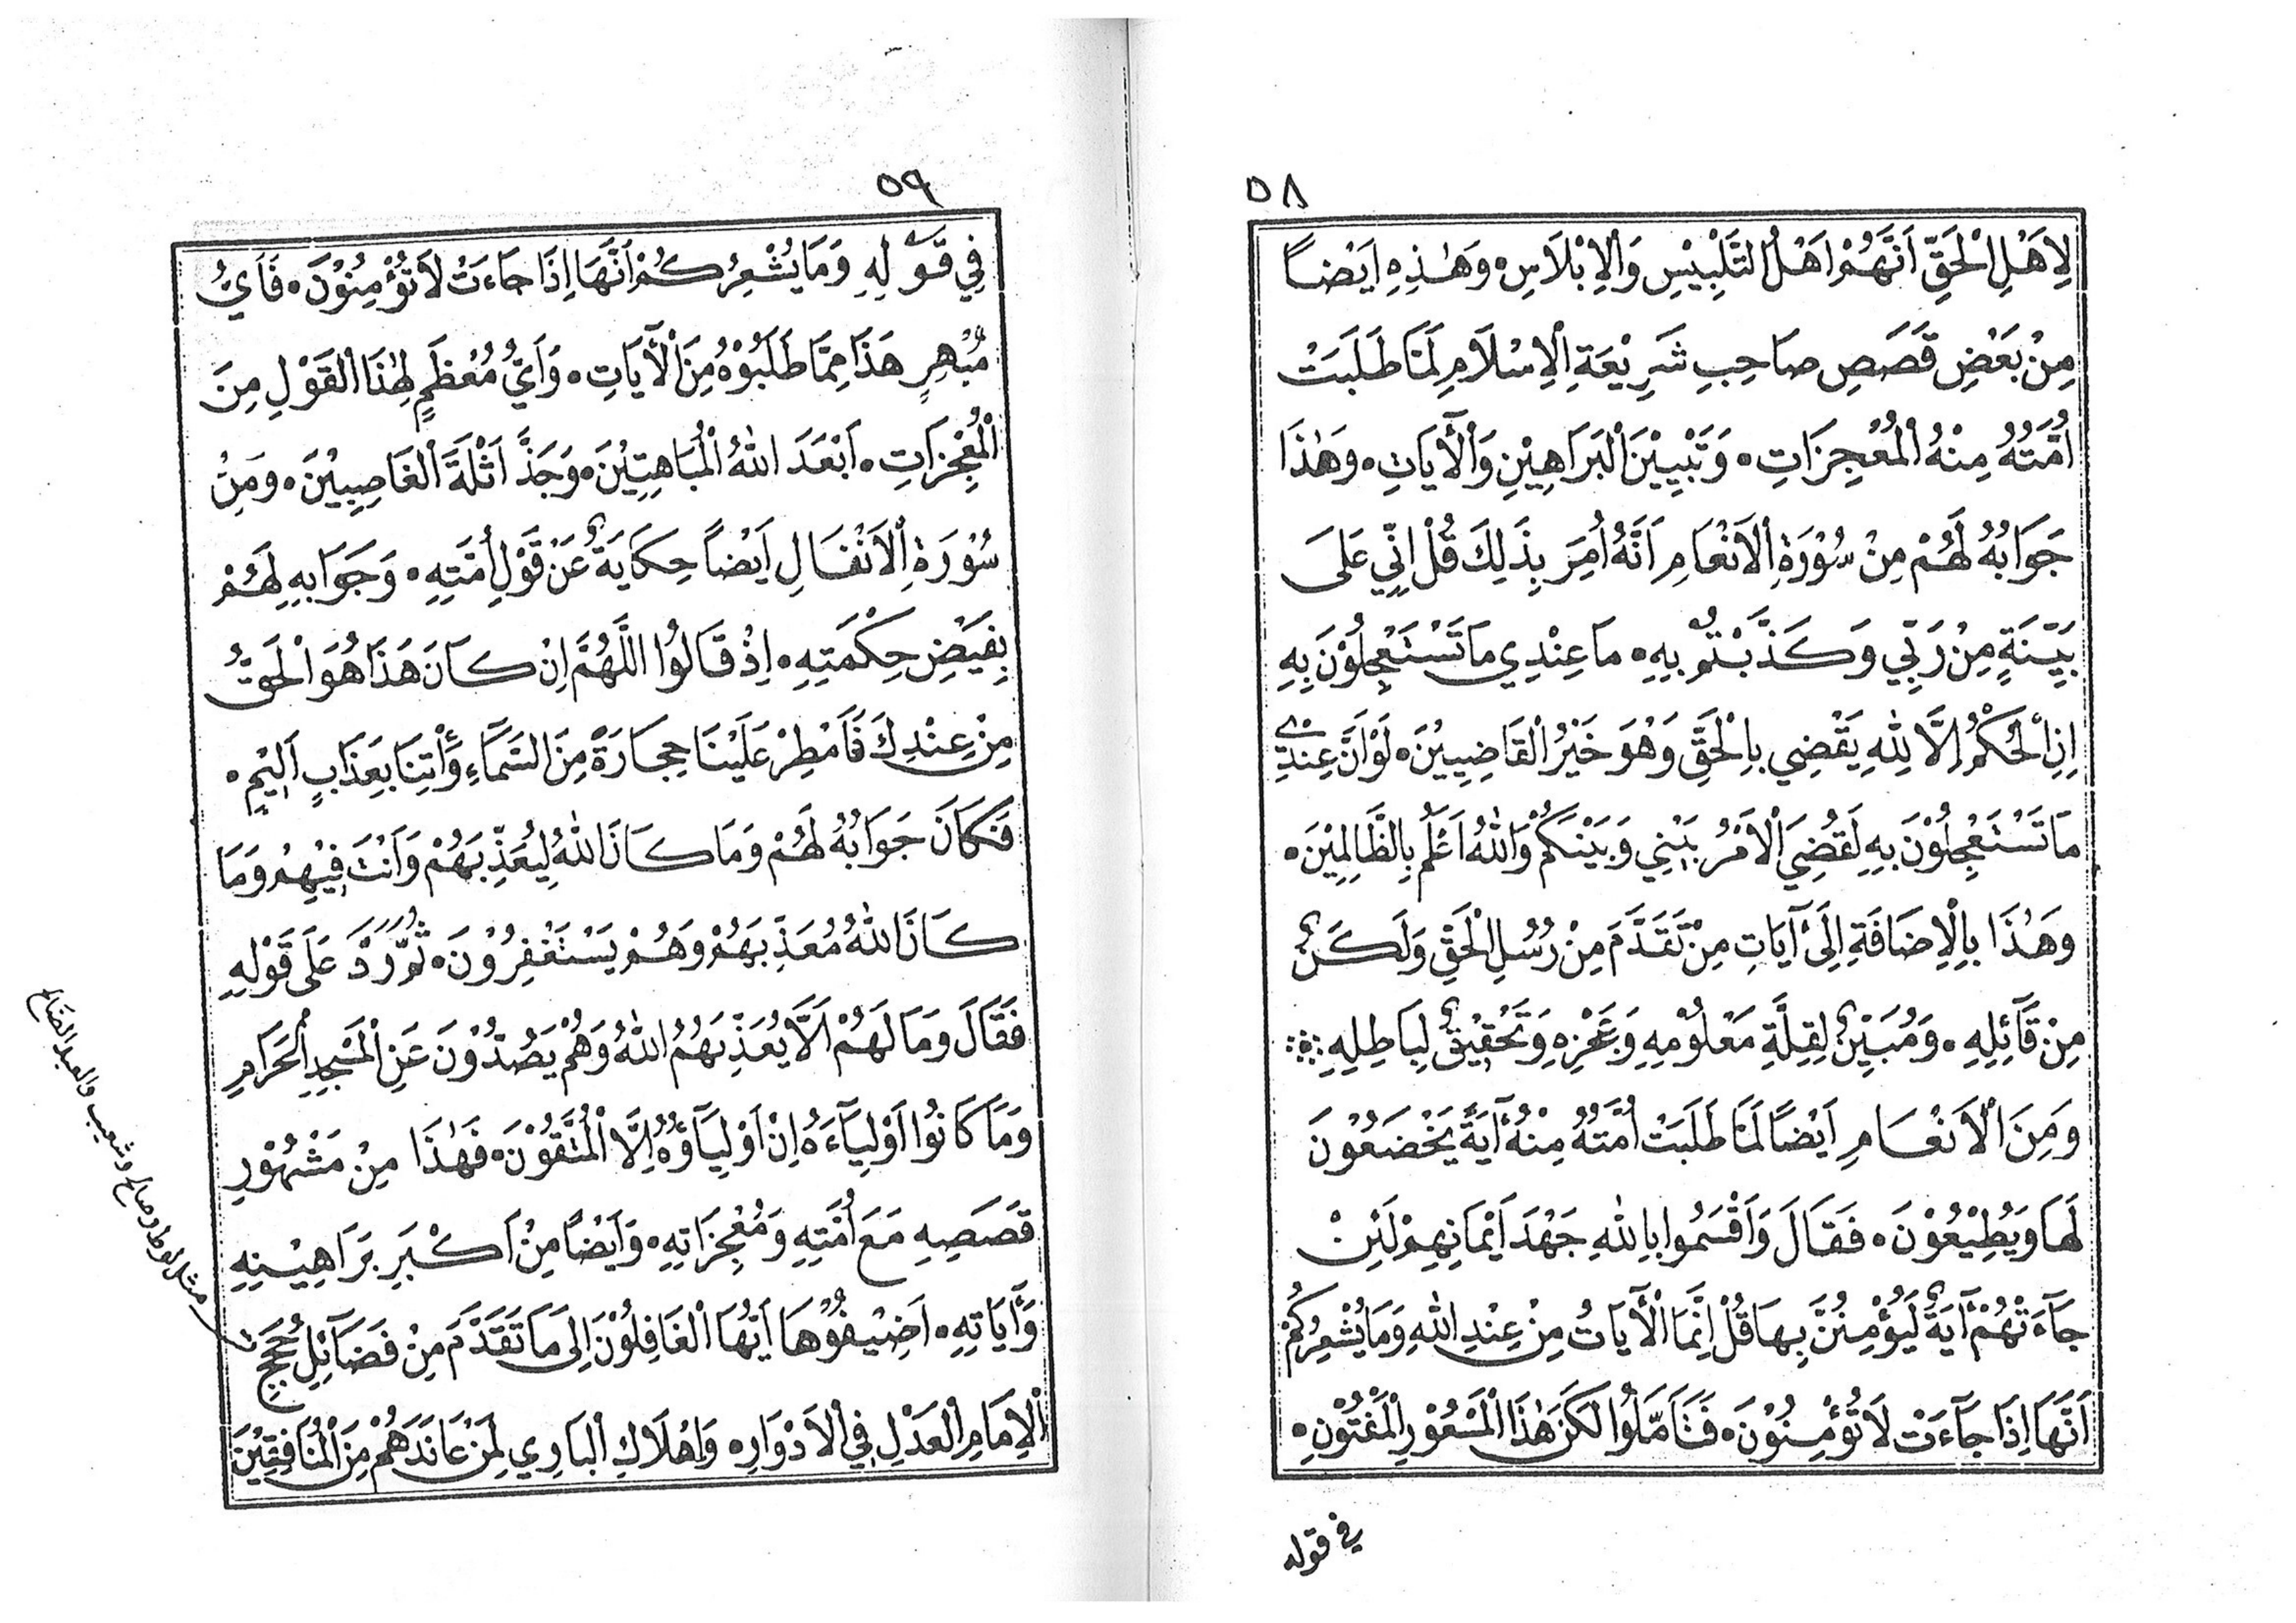 ٥٨
لِاَهْلِ الْحَقِّ اَنَّهُمْ اَهْلُ التَّلْبِيْسِ وَالْاِبْلَاسِ ۰ وَهٰذِهِ اَيْضاً
مِنْ بَعْضِ قَصَصِ صَاحِبِ شَرِيْعَةِ الْاِسْلَامِ لَمَّا طَلَبَتْ
اُمَّتُهُ مِنْهُ الْمُعْجِزَاتِ ۰ وَتَبْيِيْنَ الْبَرَاهِيْنِ وَالْآيَاتِ ۰ وَهٰذَا
جَوَابُهُ لَهُمْ مِنْ سُوْرَةِ الْاَنْعَامِ اَنَّهُ اُمِرَ بِذَلِكَ قُلْ اِنِّي عَلَى
بَيِّنَةٍ مِنْ رَبِّي وَكَذَّبْتُمْ بِهِ ۰ مَا عِنْدِي مَا تَسْتَعْجِلُوْنَ بِهِ
اِنِ الْحُكْمُ اِلَّا لِلّٰهِ يَقْضِي بِالْحَقِّ وَهُوَ خَيْرُ الْقَاضِيِيْنَ ۰ لَوْ اَنَّ عِنْدِي
مَا تَسْتَعْجِلُوْنَ بِهِ لَقُضِيَ الْاَمْرُ بَيْنِي وَبَيْنَكُمْ وَاللّٰهُ اَعْلَمُ بِالظَّالِمِيْنَ ۰
وَهٰذَا بِالْاِضَافَةِ اِلَى آيَاتِ مِنْ تَقَدَّمَ مِنْ رُسُلِ الْحَقِّ وَلَكَنٌ
مِنْ قَآئِلِهِ ۰ وَمُبَيِّنٌ لِقِلَّةِ مَعْلُوْمِهِ وَعَجْزِهِ وَتَحْقِيْقٌ لِبَاطِلِهِ
وَمِنَ الْاَنْعَامِ اَيْضًا لَمَّا طَلَبَتْ اُمَّتُهُ مِنْهُ آيَةً يَخْضَعُوْنَ
لَهَا وَيُطِيْعُوْنَ ۰ فَقَالَ وَاَقْسَمُوا بِاللّٰهِ جَهْدَ اَيْمَانِهِمْ لَئِنْ
جَآءَتْهُمْ آيَةٌ لَيُؤْمِنُنَّ بِهَا قُلْ اِنَّمَا الْآيَاتُ مِنْ عِنْدِ اللّٰهِ وَمَا يُشْعِرُكُمْ
اَنَّهَا اِذَا جَآءَتْ لَا تُؤْمِنُوْنَ ۰ فَتَأَمَّلُوا لَكَنَ هٰذَا الْمَسْعُوْرِ الْمَفْتُوْنِ ۰
في قوله
٥٩
فِي قَوْلِهِ وَمَا يُشْعِرُكُمْ اَنَّهَا اِذَا جَاءَتْ لَا تُؤْمِنُوْنَ ۰ فَاَيُّ
مُبْهِرٍ هَذَا مِمَّا طَلَبُوْهُ مِنَ الْآيَاتِ ۰ وَاَيُّ مُعْظَمٍ لِهٰذَا الْقَوْلِ مِنَ
الْمُعْجِزَاتِ ۰ اَبْعَدَ اللّٰهُ الْمُبَاهِتِيْنَ ۰ وَجَذَّ اَثْلَةَ الْغَاصِبِيْنَ ۰ وَمِنْ
سُوْرَةِ الْاَنْفَالِ اَيْضاً حِكَايَةٌ عَنْ قَوْلِ اُمَّتِهِ ۰ وَجَوَابِهِ لَهُمْ
بِفَيْضِ حِكْمَتِهِ ۰ اِذْ قَالُوا اللَّهُمَّ اِنْ كَانَ هَذَا هُوَ الْحَقَّ
مِنْ عِنْدِكَ فَاَمْطِرْ عَلَيْنَا حِجَارَةً مِنَ السَّمَآءِ وَأْتِنَا بِعَذَابٍ اَلِيْمٍ ۰
فَكَانَ جَوَابُهُ لَهُمْ وَمَا كَانَ اللّٰهُ لِيُعَذِّبَهُمْ وَاَنْتَ فِيْهِمْ وَمَا
كَانَ اللّٰهُ مُعَذِّبَهُمْ وَهُمْ يَسْتَغْفِرُوْنَ ۰ ثُمَّ رَدَّ عَلَى قَوْلِهِ
فَقَالَ وَمَا لَهُمْ اَلَّا يُعَذِّبَهُمُ اللّٰهُ وَهُمْ يَصُدُّوْنَ عَنِ الْمَسْجِدِ الْحَرَامِ
وَمَا كَانُوا اَوْلِيَآءَهُ اِنْ اَوْلِيَآؤُهُ اِلَّا الْمُتَّقُوْنَ ۰ فَهٰذَا مِنْ مَشْهُوْرِ
قَصَصِهِ مَعَ اُمَّتِهِ وَمُعْجِزَاتِهِ ۰ وَاَيْضًا مِنْ اَكْبَرِ بَرَاهِيْنِهِ
وَآيَاتِهِ ۰ اَضِيْفُوْهَا اَيُّهَا الْغَافِلُوْنَ اِلَى مَا تَقَدَّمَ مِنْ فَضَآئِلِ حُجَجِ
الْاِمَامِ الْعَدْلِ فِي الْاَدْوَارِ ۰ وَاِهْلَاكِ الْبَارِي لِمَنْ عَانَدَهُمْ مِنَ الْمُنَافِقِيْنَ
مثل لوط وصالح وشعيب والعبد الصالح